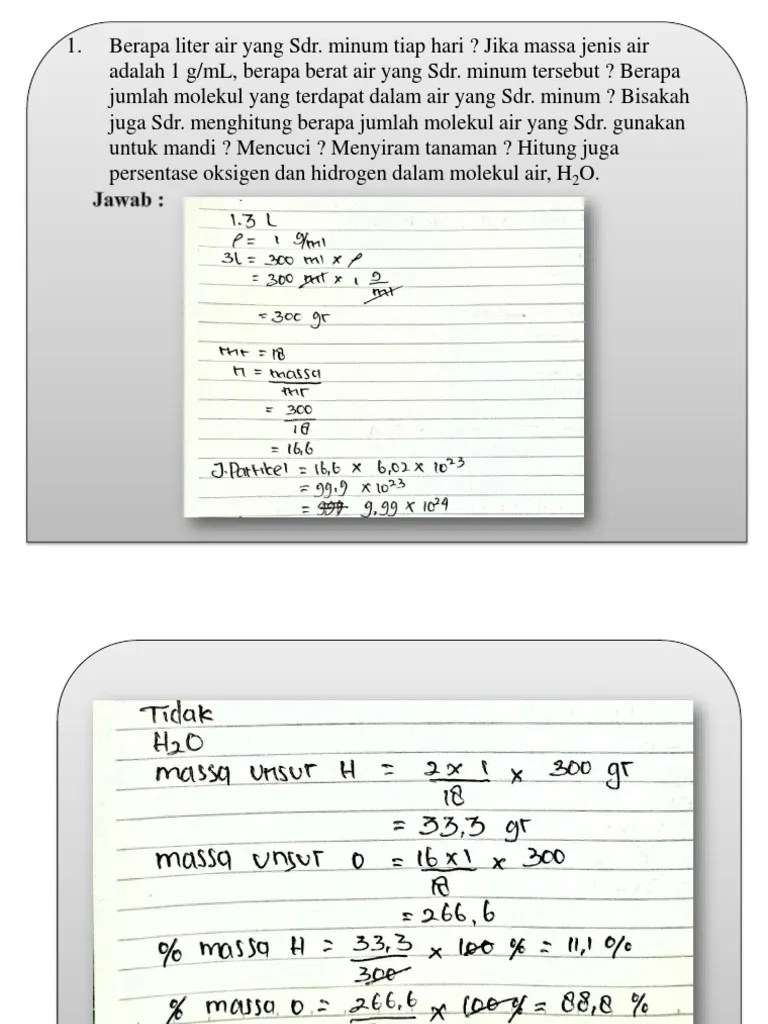 1. Berapa liter air yang Sdr. minum tiap hari ? Jika massa jenis air
adalah 1 g/mL, berapa berat air yang Sdr. minum tersebut ? Berapa
jumlah molekul yang terdapat dalam air yang Sdr. minum ? Bisakah
juga Sdr. menghitung berapa jumlah molekul air yang Sdr. gunakan
untuk mandi ? Mencuci ? Menyiram tanaman ? Hitung juga
persentase oksigen dan hidrogen dalam molekul air, H₂O.
Jawab :
1. 3 L
ρ = 1 g/ml
3L = 300 ml x ρ
= 300 ml x 1 g/ml
= 300 gr
mr = 18
n = massa
mr
= 300
18
= 16,6
J.Partikel = 16,6 x 6,02 x 10²³
= 99.9 x 10²³
= 9,99 x 10²⁴
Tidak
H₂O
massa unsur H = 2 x 1 x 300 gr
18
= 33,3 gr
massa unsur O = 16 x 1 x 300
18
= 266,6
% massa H = 33,3 x 100 % = 11,1 %
300
% massa O = 266,6 x 100 % = 88,8 %